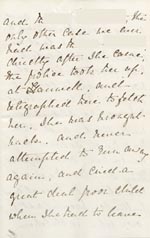 and the                the
only other case we ever
had was th
directly after she came,
the police took her up,
at           and
telegraphed here to fetch
her. She was brought
back, and never
attempted to run away
again, and cried a
great deal poor child
when she had to leave